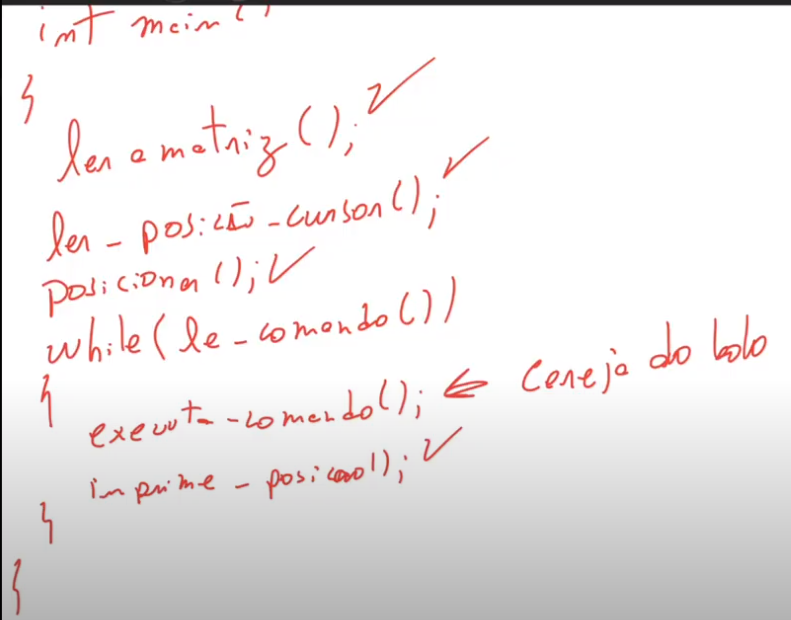 int main()
{
ler a matriz(); ✓
ler_posição_cursor(); ✓
posicionar(); ✓
while(le_comando())
{
executa_comando(); ← Cereja do bolo
imprime_posicao(); ✓
}
}